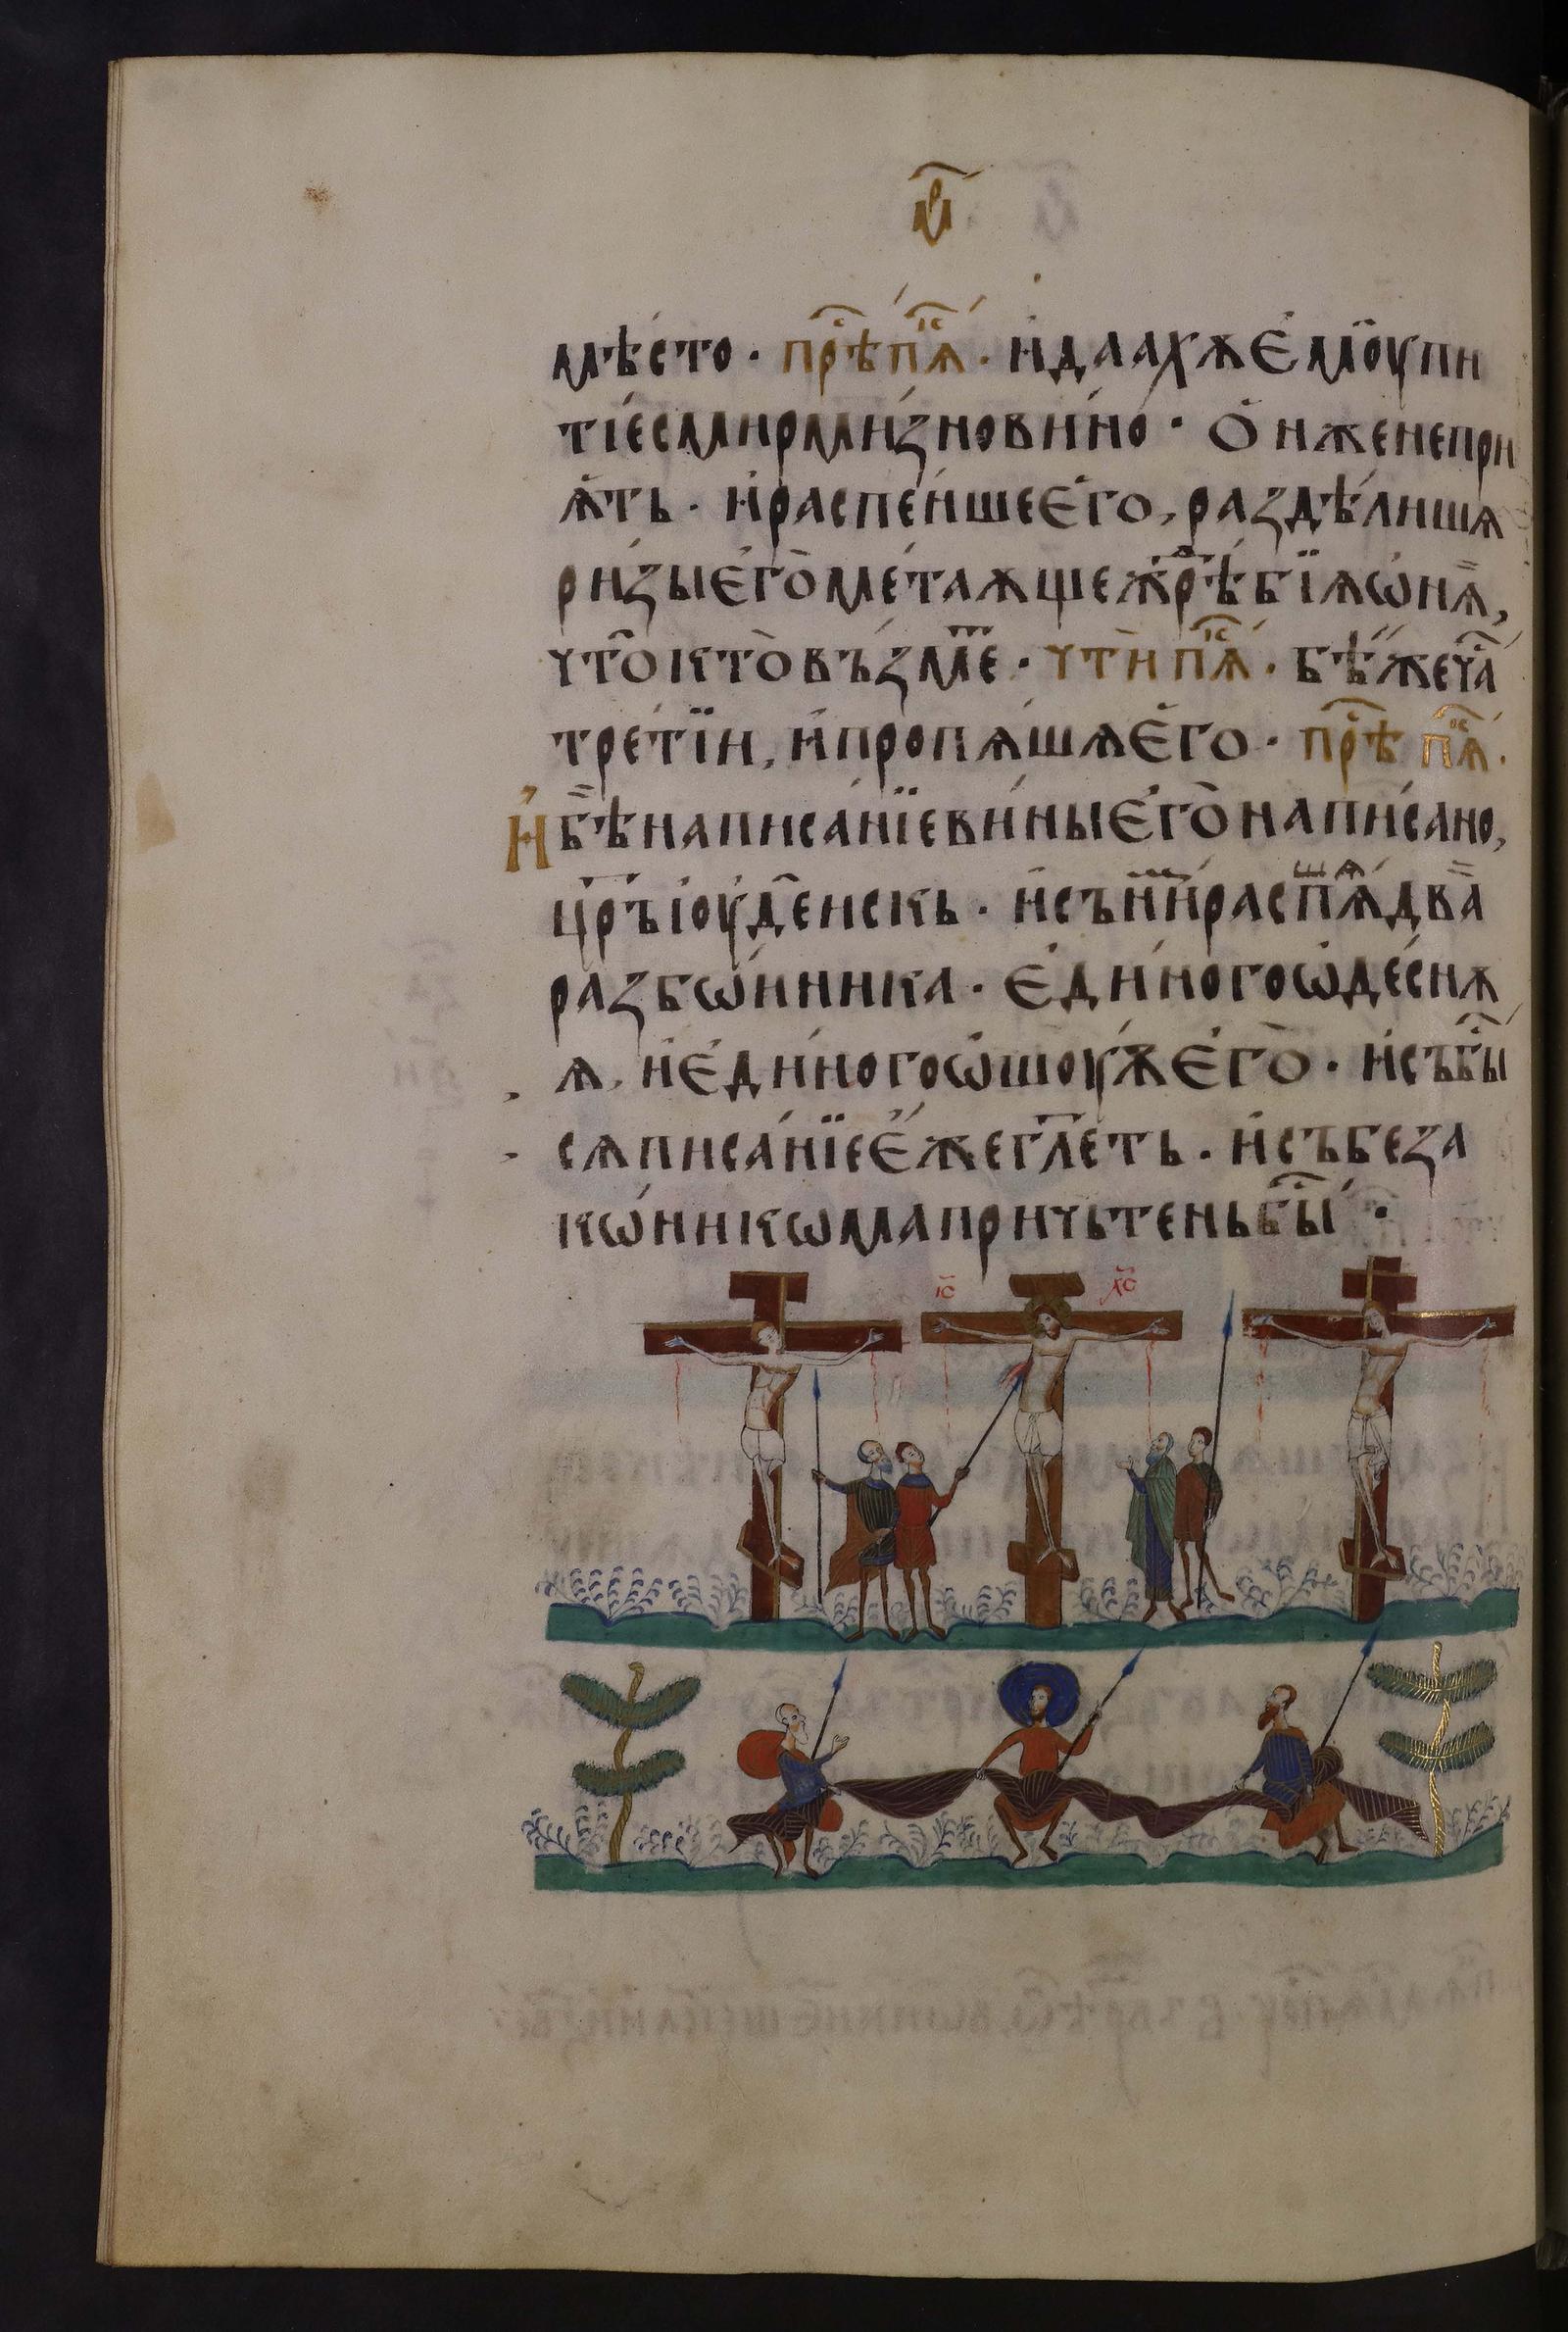 мѣ́сто · прⷭ҇ѣ пⷮѧ҇ · и҆ даахѫ є҆моу̀ пи
тїе смирмизновиино̀ · Ѻ҆н же не при
ѧ҆́ть · и҆ распе́ншее є҆го, раздѣли́шѧ
ри́зы є҆го̀ ме́таѫще жрѣ́бїѧ ѡ҆ нѧ̀,
что̀ кто̀ въ́зме · чти пⷮѧ҇ · бѣ́ же чⷭ҇а
тре́тїи, и҆ пропѧ́шѧ є҆го · прⷭ҇ѣ пⷮѧ҇ ·
И҆ бѣ̀ написа́нїе ви́ны є҆го̀ напи́сано,
цр҃ъ іоуде́нскь · и҆ съ ни́м распѧ́шѧ два̀
разбѡ́иника · є҆ди́ного ѡ҆ де́снѫ
ѧ, и҆ є҆ди́ного ѡ҆ шоу́ѫѧ є҆го̀ · и҆ събⷭ҇ы
сѧ писа́нїе є҆́же гл҃еть · и҆ съ беза
кѡ́никѡма причьтень бⷭ҇ы ·
і҃с х҃с